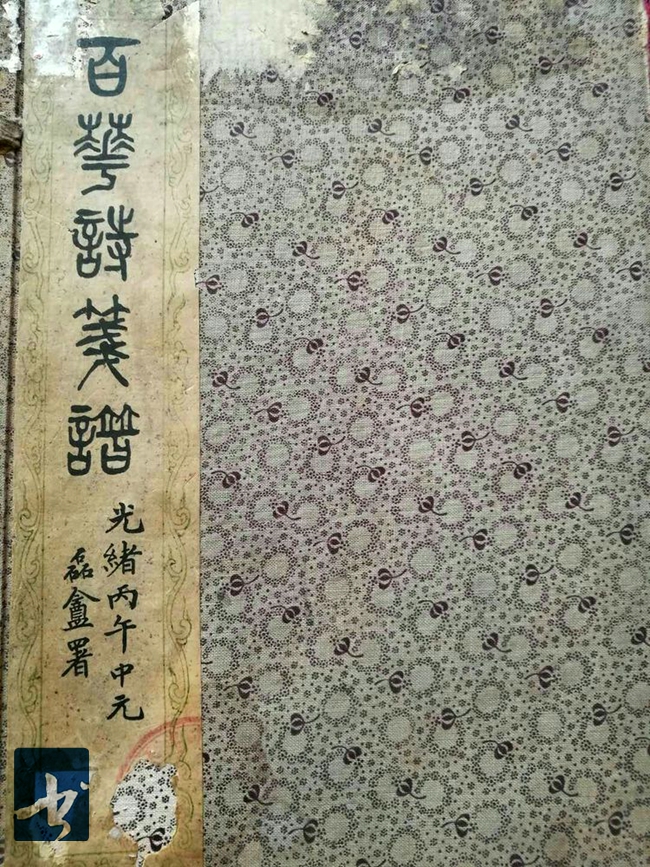 百華詩箋譜
光緒丙午中元
磊盦署
书